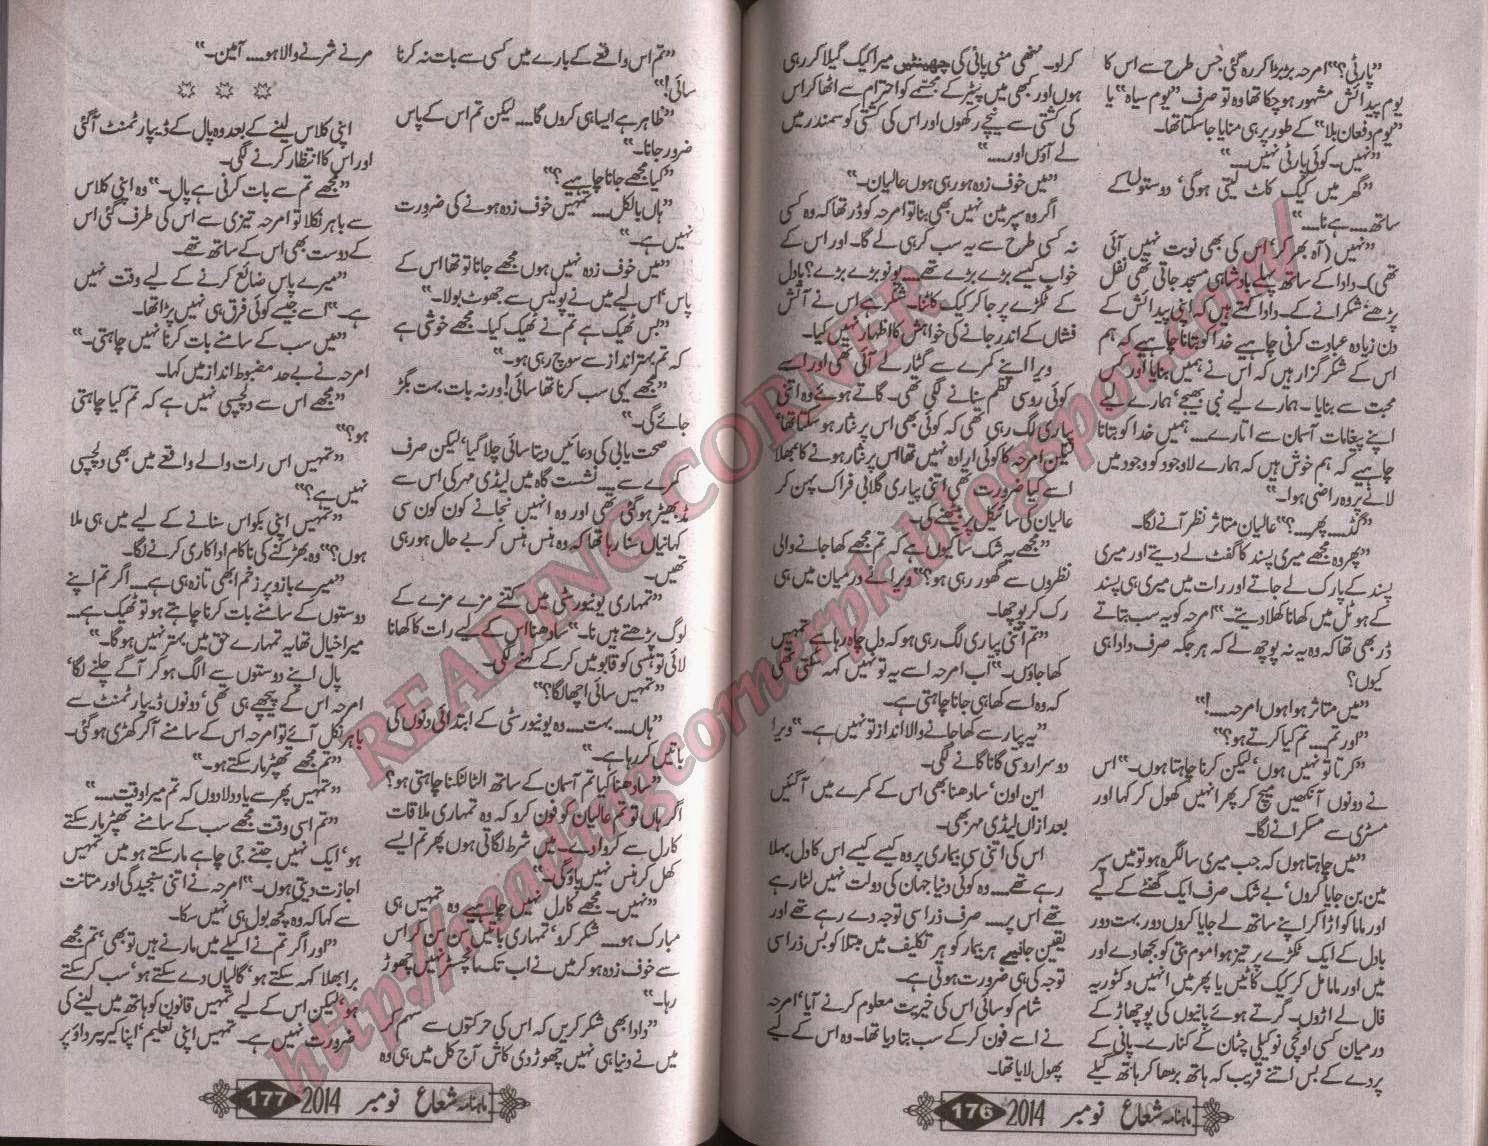 ”پارٹی؟“ امرحہ بڑبڑا کر رہ گئی جس طرح سے اس کا
یوم پیدائش مشہور ہو چکا تھا وہ تو صرف ”یوم سیاہ“ یا
”یوم دفعان بلا“ کے طور پر ہی منایا جا سکتا تھا۔
”نہیں۔ کوئی پارٹی نہیں....“
”گھر میں کیک کاٹ لیتی ہوگی‘ دوستوں کے
ساتھ.... ہے نا....“
”نہیں (آہ بھر کر‘ اس کی بھی نوبت نہیں آئی
تھی)۔ دادا کے ساتھ پہلے بادشاہی مسجد جاتی تھی نفل
پڑھنے‘ شکرانے کے۔ دادا کہتے ہیں کہ اپنی پیدائش کے
دن زیادہ عبادت کرنی چاہیے خدا کو بتانا چاہیے کہ ہم
اس کے شکر گزار ہیں کہ اس نے ہمیں بنایا اور کس
محبت سے بنایا۔ ہمارے لیے نبی بھیجے‘ ہمارے لیے
اپنے پیغامات آسمان سے اتارے.... ہمیں خدا کو بتانا
چاہیے کہ ہم خوش ہیں کہ ہمارے لاوجود کو وجود میں
لانے پر وہ راضی ہوا۔“
”گڈ.... پھر....؟“ عالیان متاثر نظر آنے لگا۔
”پھر وہ مجھے میری پسند کا گفٹ لے دیتے اور میری
پسند کے پارک لے جاتے اور رات میں میری ہی پسند
کے ہوٹل میں کھانا کھلا دیتے۔“ امرحہ کو یہ سب بتاتے
ڈر بھی تھا کہ وہ یہ نہ پوچھ لے کہ ہر جگہ صرف دادا ہی
کیوں؟
”میں متاثر ہوا ہوں امرحہ....!“
”اور تم.... تم کیا کرتے ہو؟“
”کرتا تو نہیں ہوں‘ لیکن کرنا چاہتا ہوں۔“ اس
نے دونوں آنکھیں میچ کر پھر انہیں کھول کر کہا اور
مسٹری سے مسکرانے لگا۔
”میں چاہتا ہوں کہ جب میری سالگرہ ہو تو میں سپر
مین بن جایا کروں‘ بے شک صرف ایک گھنٹے کے لیے
اور ماما کو اڑا کر اپنے ساتھ لے جایا کروں دور بہت دور
بادل کے ایک ٹکڑے پر تیز ہوا موم بتی کو بجھا دے اور
میں اور ماما مل کر کیک کاٹیں یا پھر میں انہیں وکٹوریہ
فال لے اڑوں۔ گرتے ہوئے پانیوں کی پوچھاڑ کے
درمیان کسی اونچی نوکیلی چٹان کے کنارے۔ پانی کے
پردے کے بس اتنے قریب کہ ہاتھ بڑھا کر ہاتھ گیلے
کرلو۔ ننھی منی پانی کی چھینٹیں میرا کیک گیلا کر رہی
ہوں اور کبھی میں پیٹر کے مجسمے کو احترام سے اٹھا کر اس
کی کشتی سے نیچے رکھوں اور اس کی کشتی کو سمندر میں
لے آؤں اور....“
”میں خوف زدہ ہو رہی ہوں عالیان۔“
اگر وہ سپرمین نہیں بھی بنا تو امرحہ کو ڈر تھا کہ وہ کسی
نہ کسی طرح سے یہ سب کر ہی لے گا۔ اور اس کے
خواب کیسے بڑے بڑے تھے.... یونو بڑے بڑے؟ بادل
کے ٹکڑے پر جا کر کیک کاٹنا۔ شکر ہے اس نے آتش
فشاں کے اندر جانے کی خواہش کا اظہار نہیں کیا۔
ویرا اپنے کمرے سے گٹار لے آئی تھی اور اسے
کوئی روسی نظم سنانے لگی تھی۔ گاتے ہوئے وہ اتنی
پیاری لگ رہی تھی کہ کوئی بھی اس پر نثار ہو سکتا تھا‘
لیکن امرحہ کا کوئی ارادہ نہیں تھا اس پر نثار ہونے کا بھلا
اسے کیا ضرورت تھی اتنی پیاری گلابی فراک پہن کر
عالیان کی سائیکل پر بیٹھنے کی۔
”مجھے یہ شک سا کیوں ہے کہ تم مجھے کھا جانے والی
نظروں سے گھور رہی ہو؟“ ویرا نے درمیان میں ہی
رک کر پوچھا۔
”تم اتنی پیاری لگ رہی ہو کہ دل چاہ رہا ہے تمہیں
کھا جاؤں۔“ اب امرحہ اسے یہ تو نہیں کہہ سکتی تھی
کہ وہ اسے کھا ہی جانا چاہتی ہے۔
”یہ پیار سے کھا جانے والا انداز تو نہیں ہے۔“ ویرا
دوسرا روسی گانا گانے لگی۔
این اون‘ سادھنا بھی اس کے کمرے میں آ گئیں
بعد ازاں لیڈی مہر بھی۔
اس کی اتنی سی بیماری پر وہ کیسے کیسے اس کا دل بہلا
رہے تھے.... وہ کوئی دنیا جہان کی دولت نہیں لٹا رہے
تھے اس پر.... صرف ذرا سی توجہ دے رہے تھے اور
یقین جانیے ہر بیمار کو ہر تکلیف میں مبتلا کو بس ذرا سی
توجہ کی ہی ضرورت ہوتی ہے۔
شام کو سائی اس کی خیریت معلوم کرنے آیا‘ امرحہ
نے اسے فون کر کے سب بتا دیا تھا۔ وہ اس کے لیے
پھول لایا تھا۔
ماہنامہ شعاع نومبر 2014 176
”تم اس واقعے کے بارے میں کسی سے بات نہ کرنا
سائی!“
”ظاہر ہے ایسا ہی کروں گا.... لیکن تم اس کے پاس
ضرور جانا۔“
”کیا مجھے جانا چاہیے؟“
”ہاں بالکل.... تمہیں خوف زدہ ہونے کی ضرورت
نہیں ہے۔“
”میں خوف زدہ نہیں ہوں مجھے جانا تو تھا اس کے
پاس‘ اس لیے میں نے پولیس سے جھوٹ بولا۔“
”بس ٹھیک ہے تم نے ٹھیک کیا۔ مجھے خوشی ہے
کہ تم بہتر انداز سے سوچ رہی ہو۔“
”مجھے یہی سب کرنا تھا سائی! ورنہ بات بہت بگڑ
جائے گی۔“
صحت یابی کی دعائیں دیتا سائی چلا گیا‘ لیکن صرف
کمرے سے.... نشست گاہ میں لیڈی مہر کی اس سے
مڈبھیڑ ہو گئی تھی اور وہ انہیں نجانے کون کون سی
کہانیاں سنا رہا تھا کہ وہ ہنس ہنس کر بے حال ہو رہی
تھیں۔
”تمہاری یونیورسٹی میں کتنے مزے مزے کے
لوگ پڑھتے ہیں نا۔“ سادھنا اس کے لیے رات کا کھانا
لائی تو ہنسی کو قابو میں کر کے کہنے لگی۔
”تمہیں سائی اچھا لگا؟“
”ہاں.... بہت.... وہ یونیورسٹی کے ابتدائی دنوں کی
باتیں کر رہا ہے۔“
”سادھنا کیا تم آسمان کے ساتھ الٹا لٹکنا چاہتی ہو؟
اگر ہاں تو تم عالیان کو فون کرو کہ وہ تمہاری ملاقات
کارل سے کروا دے۔ میں شرط لگاتی ہوں پھر تم ایسے
کھل کر ہنس نہیں پاؤ گی۔“
”نہیں۔ مجھے کارل نہیں چاہیے وہ تمہیں ہی
مبارک ہو.... شکر کرو‘ تمہاری باتیں سن سن کر اس
سے خوف زدہ ہو کر میں نے اب تک مانچسٹر نہیں چھوڑ
رہا۔“
”دادا بھی شکر کریں کہ اس کی حرکتوں سے سہم کر
میں نے دنیا ہی نہیں چھوڑ دی کاش آج کل میں ہی وہ
مرنے شرنے والا ہو.... آمین۔“
اپنی کلاس لینے کے بعد وہ پال کے ڈیپارٹمنٹ آ گئی
اور اس کا انتظار کرنے لگی۔
”مجھے تم سے بات کرنی ہے پال۔“ وہ اپنی کلاس
سے باہر نکلا تو امرحہ تیزی سے اس کی طرف گئی اس
کے دوست بھی اس کے ساتھ تھے۔
”میرے پاس ضائع کرنے کے لیے وقت نہیں
ہے۔“ اسے جیسے کوئی فرق ہی نہیں پڑا تھا۔
”میں سب کے سامنے بات کرنا نہیں چاہتی۔“
امرحہ نے بے حد مضبوط انداز میں کہا۔
”مجھے اس سے دلچسپی نہیں ہے کہ تم کیا چاہتی
ہو؟“
”تمہیں اس رات والے واقعے میں بھی دلچسپی
نہیں ہے؟“
”تمہیں اپنی بکواس سنانے کے لیے میں ہی ملا
ہوں؟“ وہ بھڑکنے کی ناکام اداکاری کرنے لگا۔
”میرے بازو پر زخم ابھی تازہ ہی ہے.... اگر تم اپنے
دوستوں کے سامنے بات کرنا چاہتے ہو تو ٹھیک ہے....
میرا خیال تھا یہ تمہارے حق میں بہتر نہیں ہوگا۔“
پال اپنے دوستوں سے الگ ہو کر آگے چلنے لگا‘
امرحہ اس کے پیچھے ہی تھی‘ دونوں ڈیپارٹمنٹ سے
باہر نکل آئے تو امرحہ اس کے سامنے آکر کھڑی ہو گئی۔
”تم مجھے تھپڑ مار سکتے ہو۔“
”تمہیں پھر سے یاد دلا دوں کہ تم میرا وقت....“
”تم اسی وقت مجھے سب کے سامنے تھپڑ مار سکتے
ہو‘ ایک نہیں جتنے جی چاہے مار سکتے ہو میں تمہیں
اجازت دیتی ہوں۔“ امرحہ نے اتنی سنجیدگی اور متانت
سے کہا کہ وہ کچھ بول ہی نہیں سکا۔
”اور اگر تم نے اکیلے میں مارنے ہیں تو بھی‘ تم مجھے
برا بھلا کہہ سکتے ہو‘ گالیاں دے سکتے ہو‘ سب کر سکتے
ہو‘ لیکن اس کے لیے تمہیں قانون کو ہاتھ میں لینے کی
ضرورت نہیں ہے۔ تمہیں اپنی تعلیم‘ اپنا کیریئر داؤ پر
ماہنامہ شعاع نومبر 2014 177
READING CORNER
http://readingcornerpk.blogspot.com/